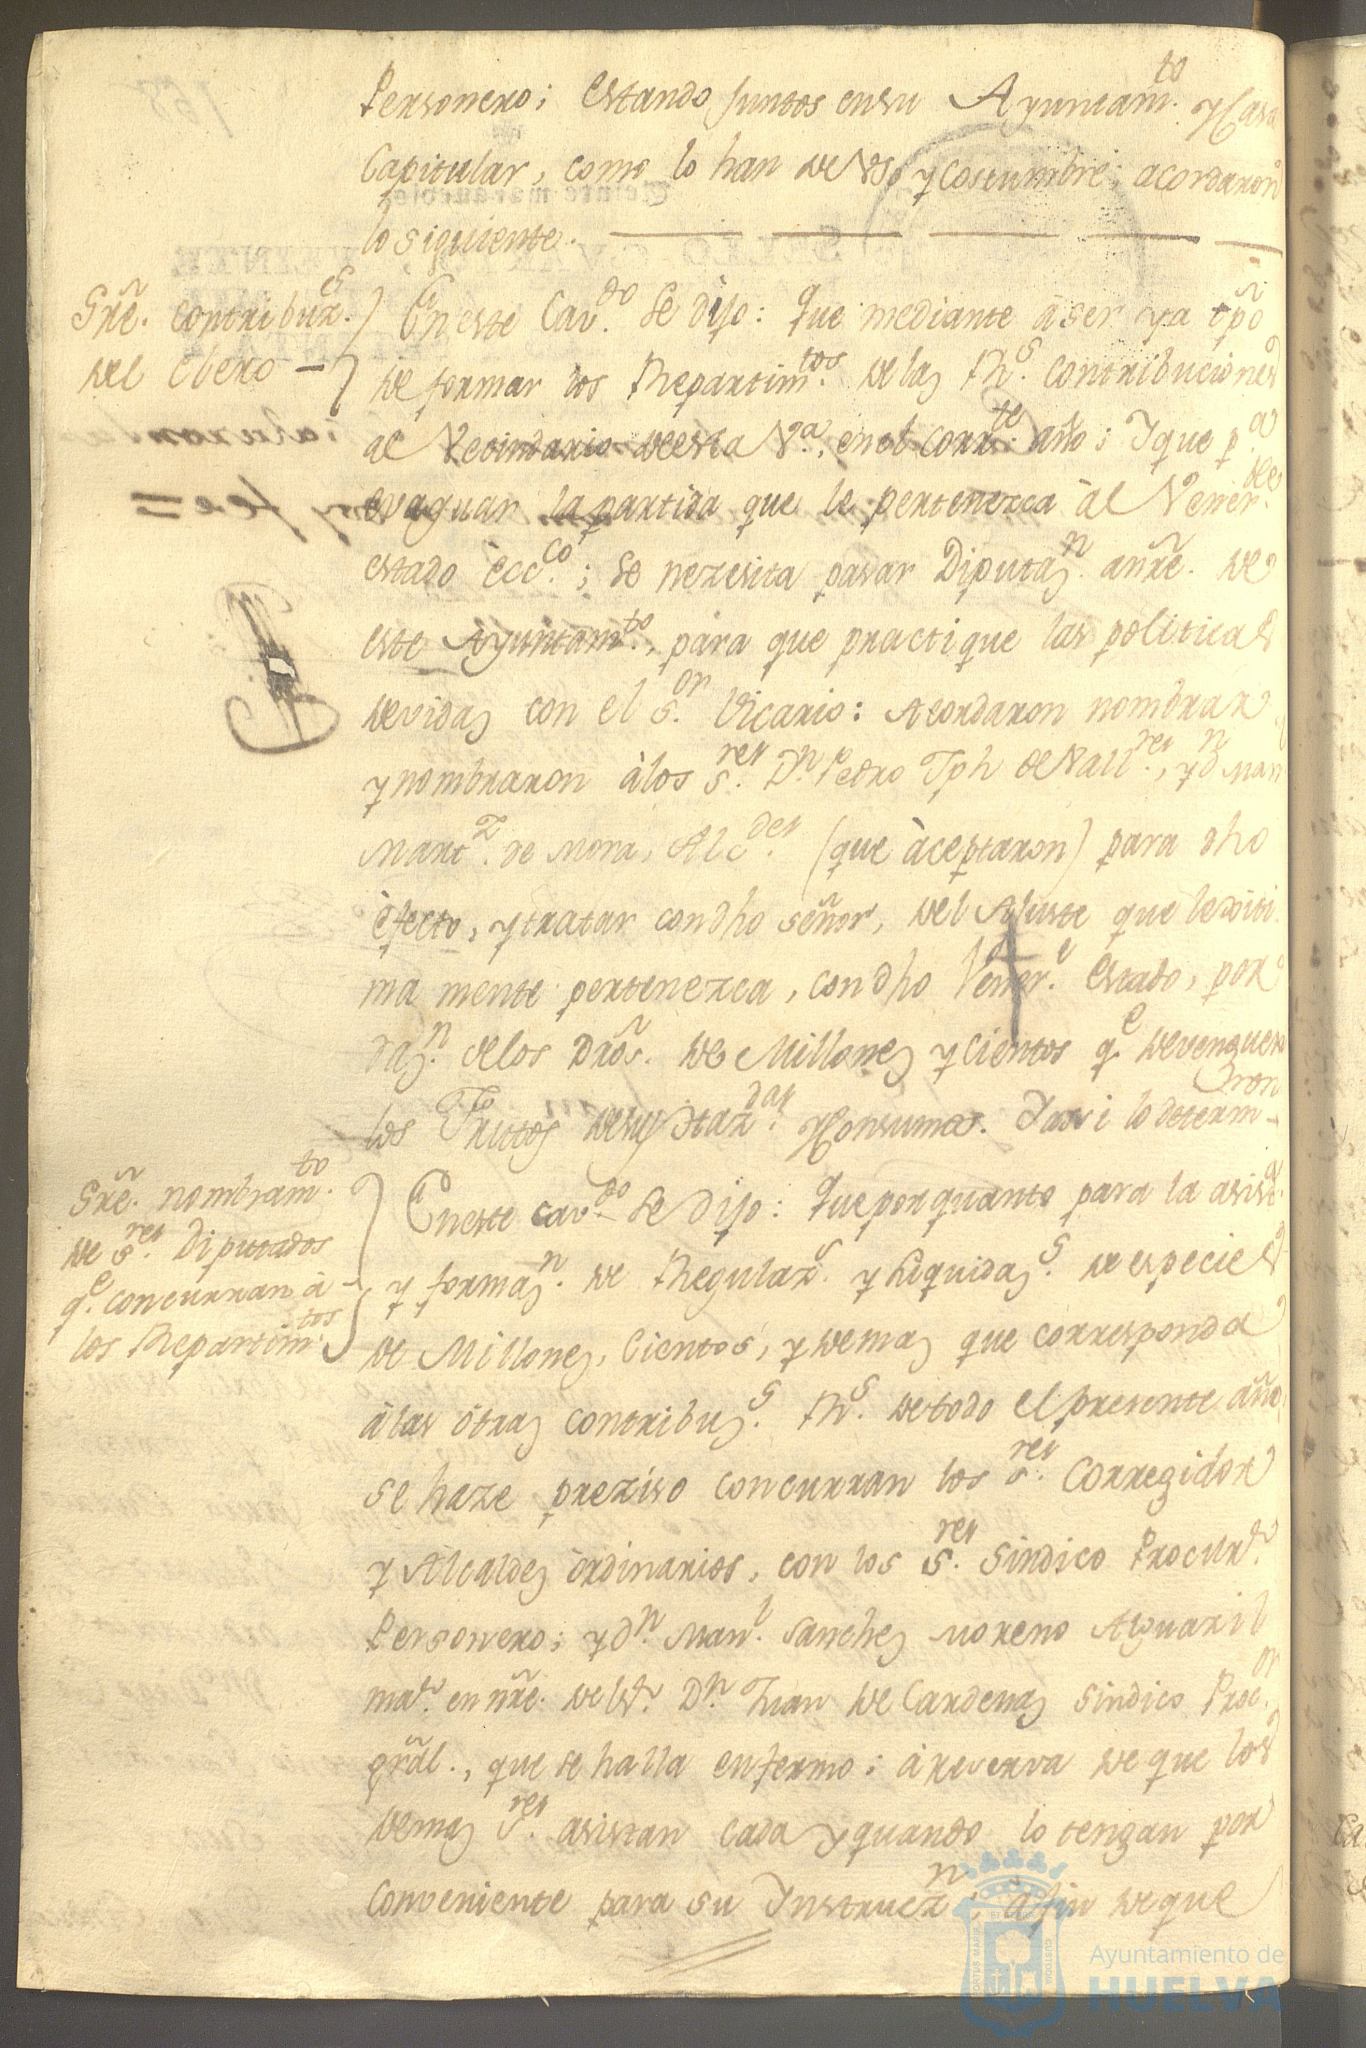 Personero; estando Juntos en su Ayuntam.to y Casa
Capitular, como lo han de Vso y costumbre; acordaron
lo siguiente.
Sre. contribuz.es
del Clero
En este Cav.do Se dijo: Que mediante à ser ya tpo
de formar los Repartim.tos de las Rs. Contribuciones
al Vecindario de esta V.a, en el corr.te año; Y que p.a
evaquar la partida que le pertenezca àl Vener.ble
estado ècc.co; se nezesita pasar Diputaz.n anre. de
este Ayuntam.to, para que practique las politicas
devidas con el S.or Vicario: Acordaron nombrar
y nombraron àlos S.res D.n Pedro Jph de Vall.res, y d.n Man
Mart.z de Mora, Alc.des (que àceptaron) para dho
èfecto, y tratar con dho señor, del Ajuste que lexiti
mamente pertenezca, con dho Vener.e Estado, por
raz.n delos Dros. de Millones y Cientos q.e devenguen
los Frutos de sus Haz.das y Consumos. Y asi lo determ-
ron
Sre. nombram.to
de S.res Diputados
q.e concurran à
los Repartim.tos
En este cav.do Se Dijo: Que por quanto para la asist.a
y formaz.n de Regulaz.s y Liquidaz.s de especies
de Millones, Cientos, y demas que corresponda
àlas òtras contribuz.s Rs. de todo el presente año
se haze preziso concurran los S.res Corregidor
y Àlcaldes òrdinarios, con los S.res Sindico Procur.r
Personero; y d.n Man.l Sanchez Moreno Alguazil
ma.r en nre. del S.r D.n Juan de Cardenas Sindico Proc.or
gral., que se halla enfermo; à reserva de que los
demas S.res asistan cada y quando lo tengan por
conveniente para su Ynstrucz.n; à fin de que
Ayuntamiento de
HUELVA